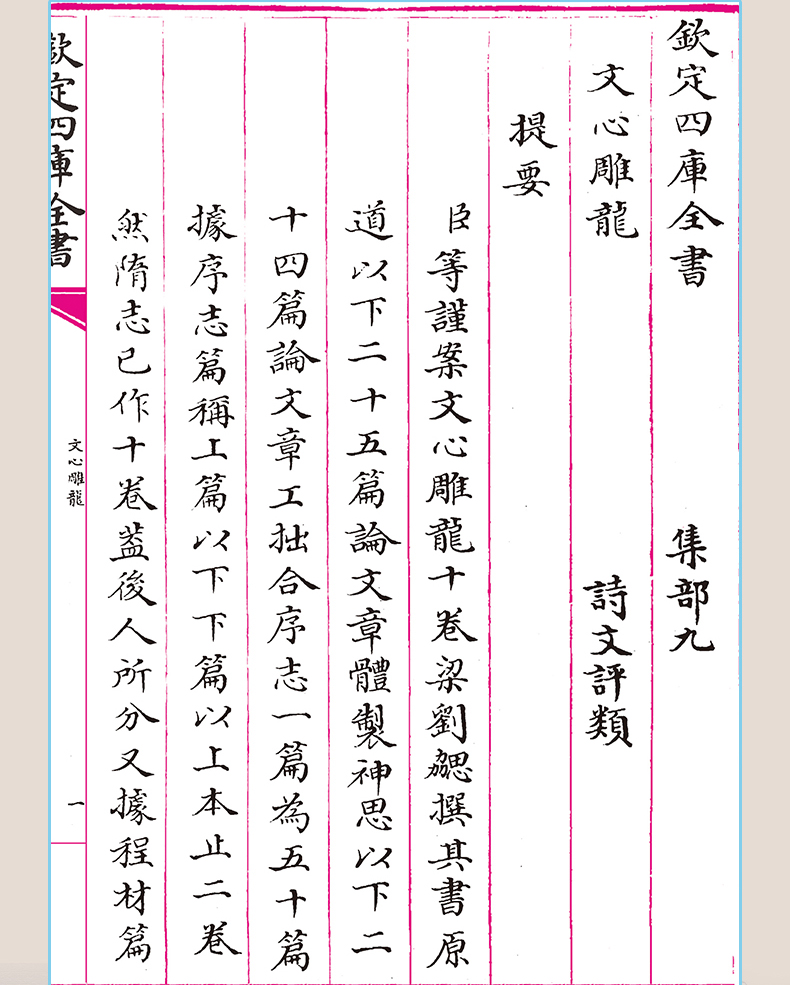 欽定四庫全書　集部九
文心雕龍　詩文評類
提要
臣等謹案文心雕龍十卷梁劉勰撰其書原
道以下二十五篇論文章體製神思以下二
十四篇論文章工拙合序志一篇為五十篇
據序志篇稱上篇以下下篇以上本止二卷
然隋志已作十卷葢後人所分又據程材篇
欽定四庫全書
文心雕龍
一